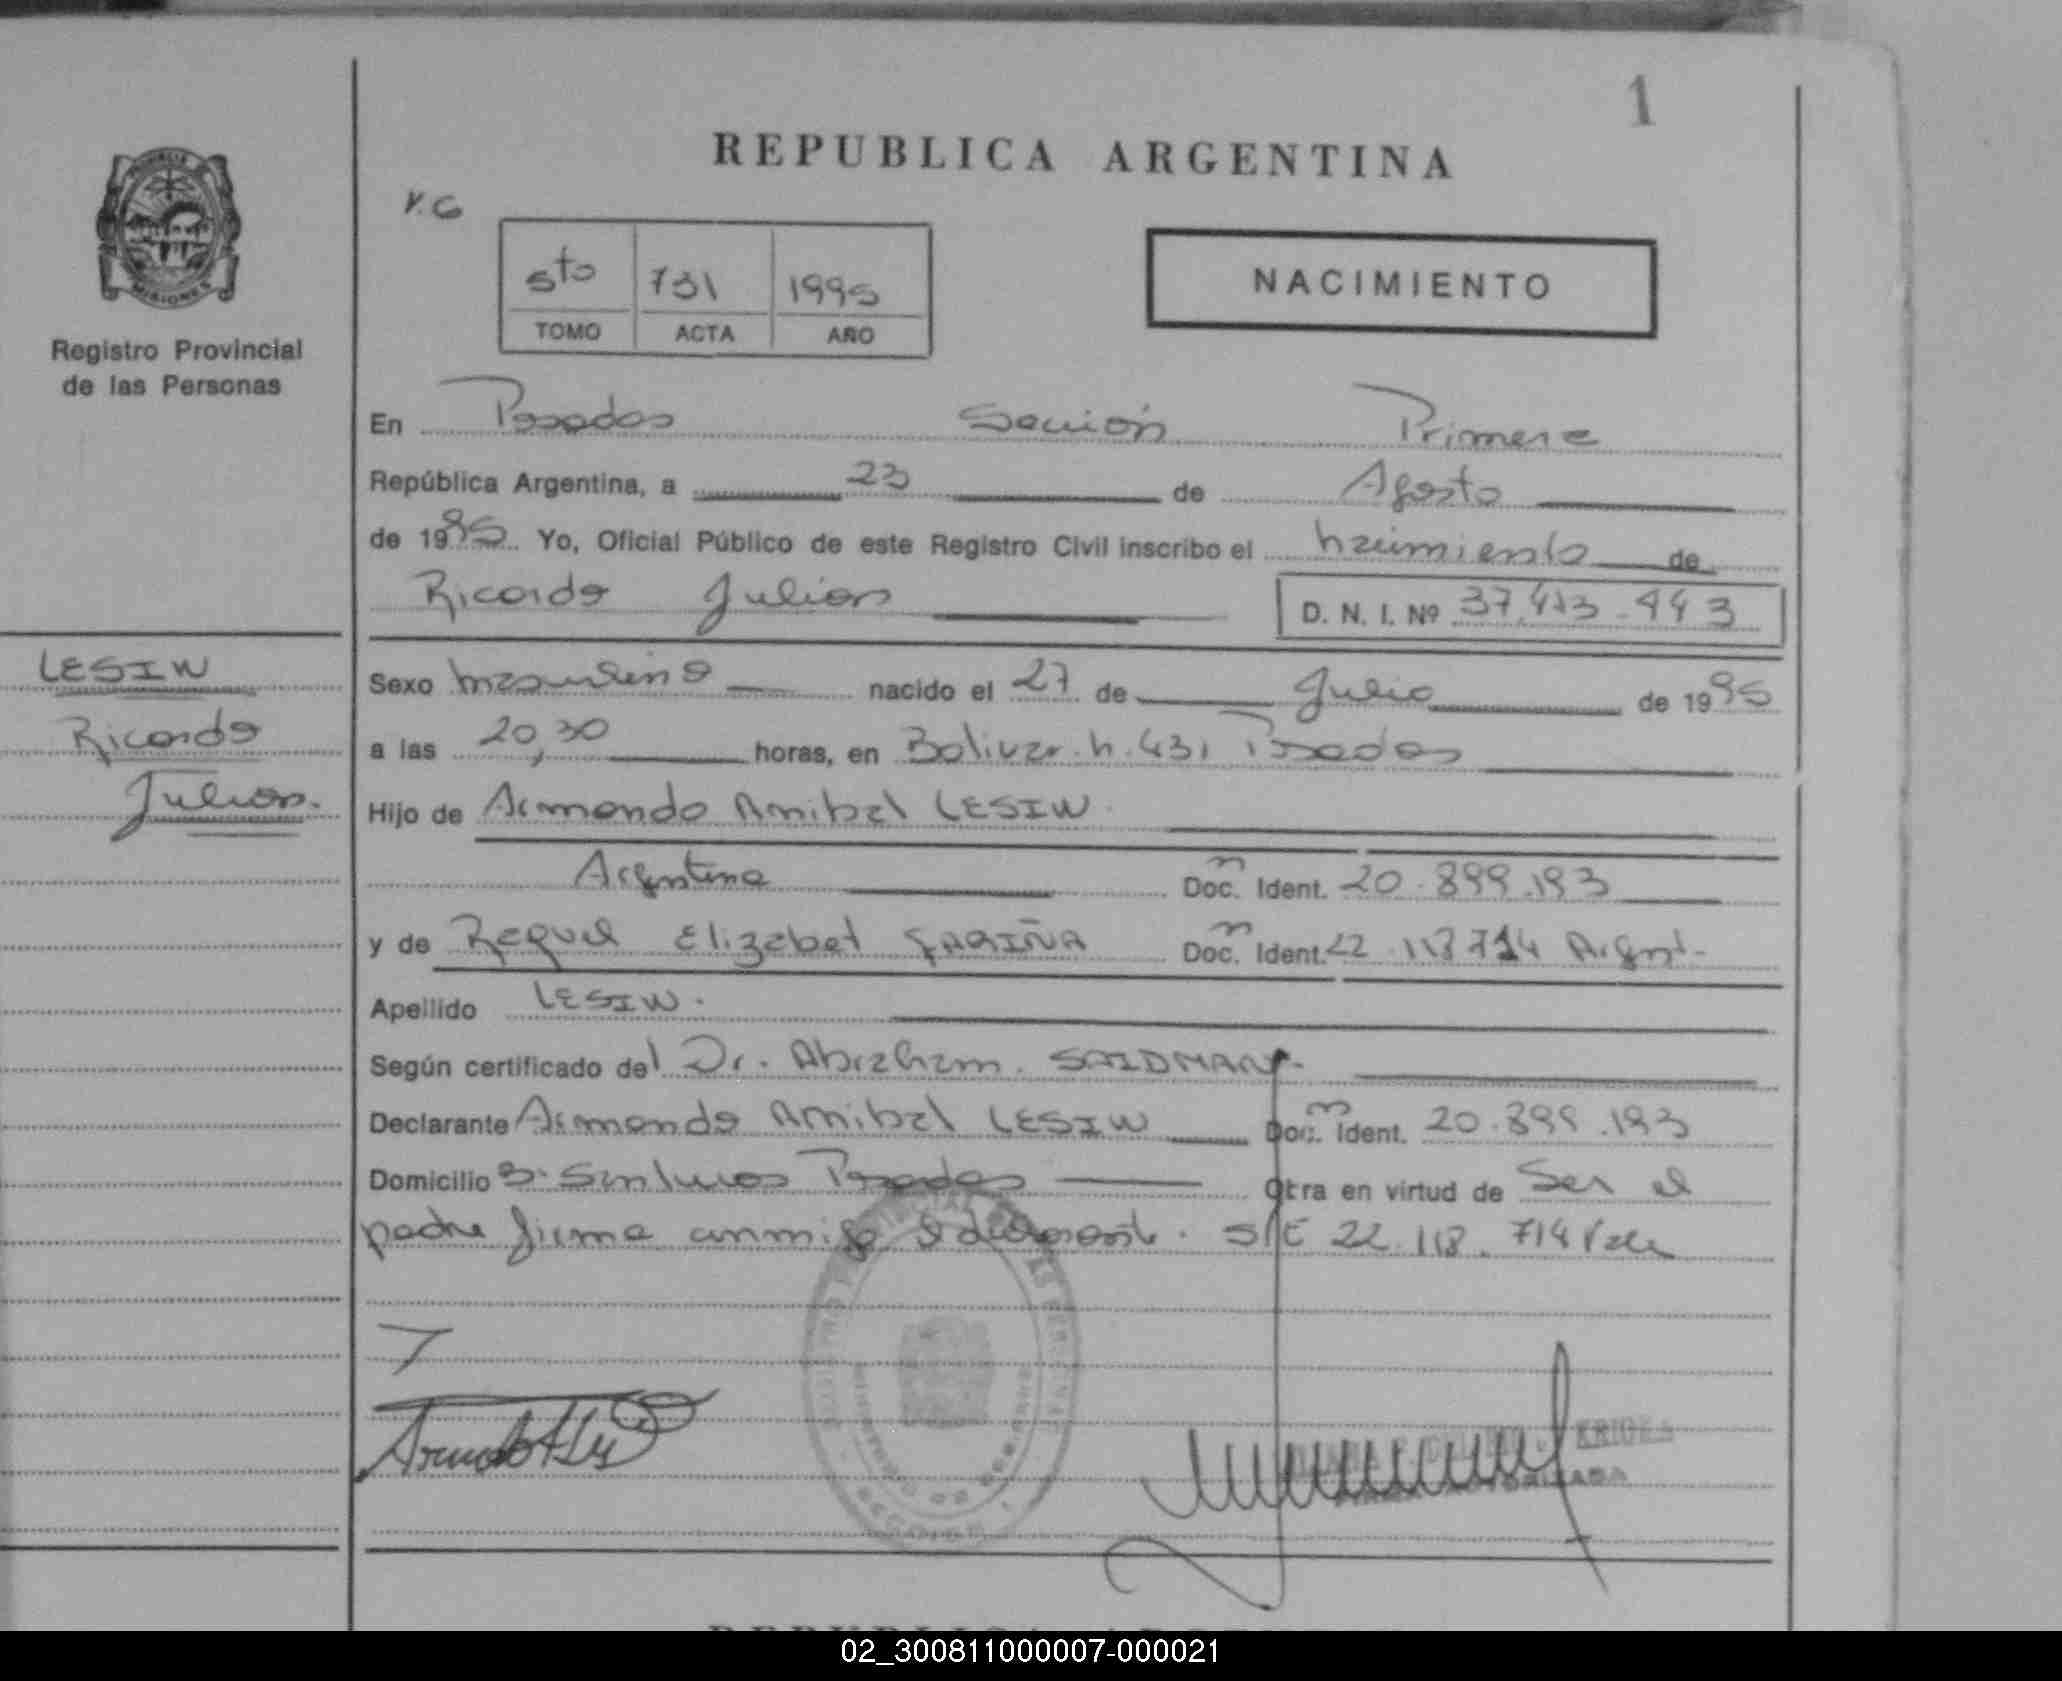 1
REPUBLICA ARGENTINA
V.G
5to 731 1995
TOMO ACTA AÑO
NACIMIENTO
MISIONES
Registro Provincial
de las Personas
En Posadas Sección Primera
República Argentina, a 23 de Agosto
de 1995. Yo, Oficial Público de este Registro Civil inscribo el nacimiento de
Ricardo Julian D. N. I. Nº 37.413.443
LESIW
Ricardo
Julian.
Sexo masculino nacido el 27 de Julio de 1995
a las 20,30 horas, en Bolivar n. 431 Posadas
Hijo de Armando Anibal LESIW.
Argentina Doc. Ident. 20.899.193
y de Raquel Elizabet FARIÑA Doc. Ident. 22.118714 Argent.
Apellido LESIW.
Según certificado del Dr. Abraham. SAIDMAN.
Declarante Armando Anibal LESIW Doc. Ident. 20.899.193
Domicilio Posadas Otra en virtud de Ser el
padre firma conmigo el declarante. S/E 22.118.714 Vale
FIRMA AUTORIZADA
REPUBLICA ARGENTINA
02_300811000007-000021